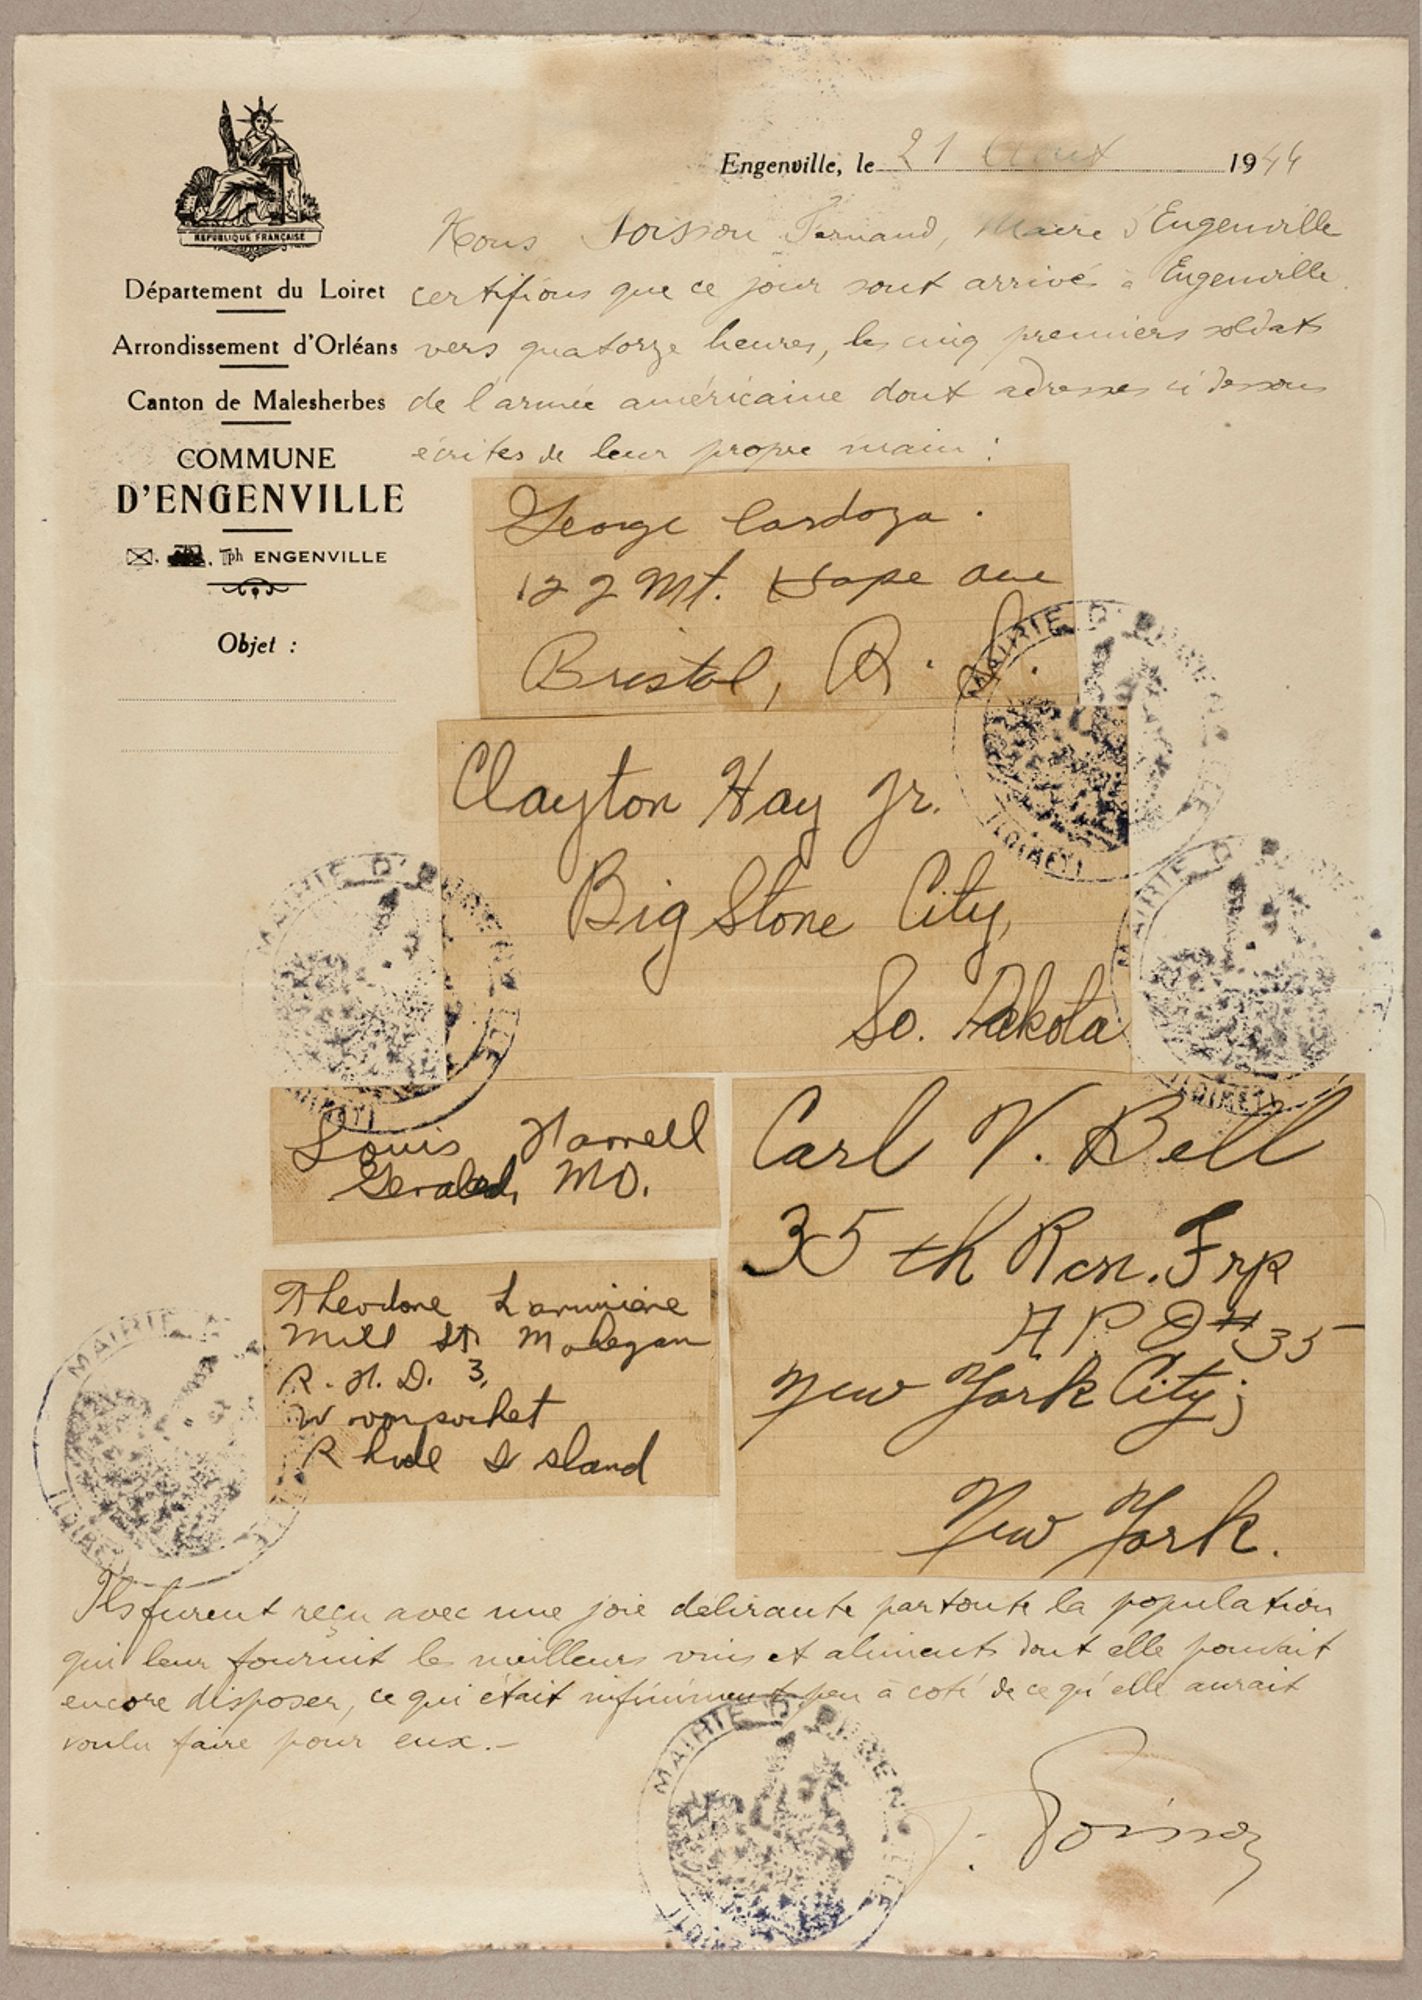 RÉPUBLIQUE FRANÇAISE
Département du Loiret
Arrondissement d'Orléans
Canton de Malesherbes
COMMUNE
D'ENGENVILLE
Tph ENGENVILLE
Objet :
Engenville, le 21 Aout 1944
Nous Poisson Fernand, Maire d'Engenville
certifions que ce jour sont arrivé à Engenville
vers quatorze heures, les cinq premiers soldats
de l'armée américaine dont adresses ci dessous
écrites de leur propre main :
George Cardoza.
122 Mt. Hope Ave
Bristol, R. I.
Clayton Hay Jr.
Big Stone City,
So. Dakota
Louis Harrell
Gerald, MO.
Theodore Lamiviere
Mill St. Mohegan
R.F.D. 3,
Woonsocket
Rhode Island
Carl V. Bell
35th Rcn. Trp
A P O #35
New York City;
New York.
Ils furent reçu avec une joie délirante par toute la population
qui leur fournit les meilleurs vins et aliments dont elle pouvait
encore disposer, ce qui était infiniment peu à coté de ce qu'elle aurait
voulu faire pour eux.-
F. Poisson
MAIRIE D'ENGENVILLE
(LOIRET)
MAIRIE D'ENGENVILLE
(LOIRET)
MAIRIE D'ENGENVILLE
(LOIRET)
MAIRIE D'ENGENVILLE
(LOIRET)
MAIRIE D'ENGENVILLE
(LOIRET)